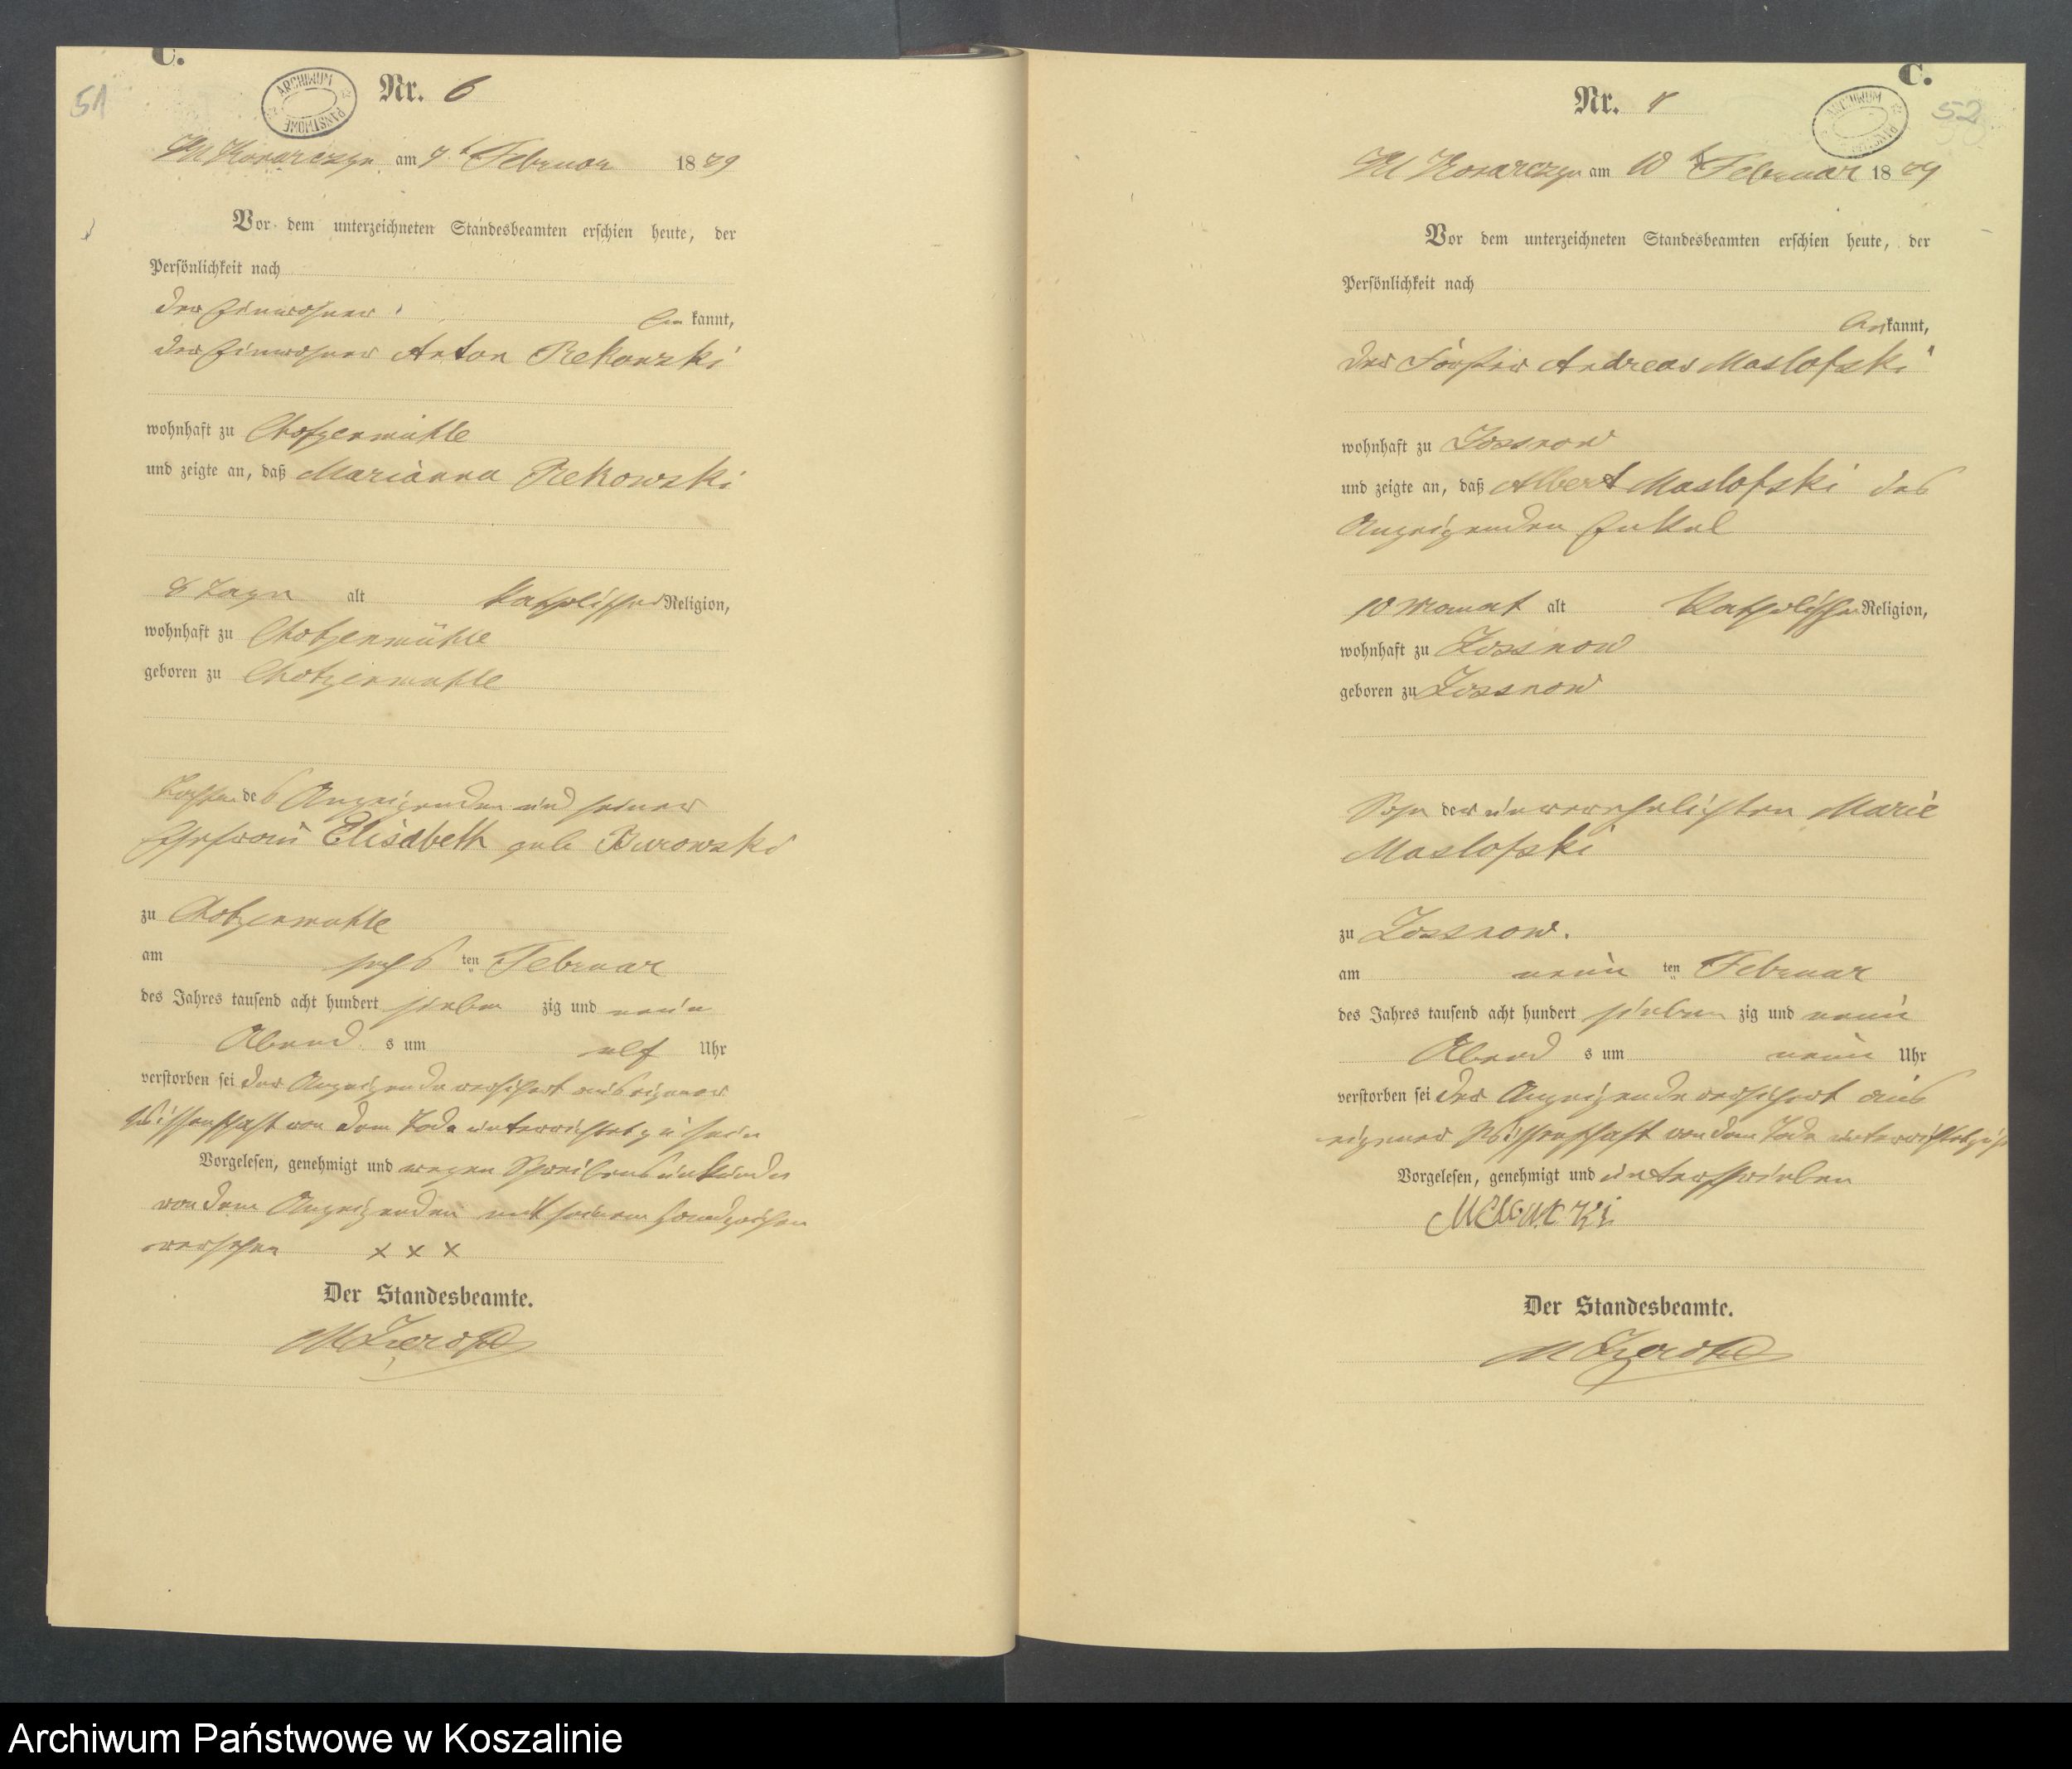 C.
51
ARCHIWUM PAŃSTWOWE
Nr. 6
Kl Konarczyn am 7 t Februar 1879
Vor dem unterzeichneten Standesbeamten erschien heute, der
Persönlichkeit nach
der Einwohner
be kannt,
der Einwohner Anton Rekowski
wohnhaft zu Chotzenmühle
und zeigte an, daß Marianna Rekowski
8 Tage alt katholischer Religion,
wohnhaft zu Chotzenmühle
geboren zu Chotzenmühle
Tochter des Anzeigenden und seiner
Ehefrau Elisabeth geb Burowski
zu Chotzenmühle
am sechs ten Februar
des Jahres tausend acht hundert sieben zig und neun
Abend s um elf Uhr
verstorben sei der Anzeigende versichert aus eigener
Wissenschaft von dem Tode unterrichtet zu sein
Vorgelesen, genehmigt und wegen Schreibensunkunde
von dem Anzeigenden mit seinem Handzeichen
versehen x x x
Der Standesbeamte.
C.
52
ARCHIWUM PAŃSTWOWE
Nr.
Kl Konarczyn am 10 t Februar 1879
Vor dem unterzeichneten Standesbeamten erschien heute, der
Persönlichkeit nach
be kannt,
der Förster Andreas Maslofski
wohnhaft zu Zossnow
und zeigte an, daß Albert Maslofski des
Anzeigenden Enkel
10 Monat alt Katholischer Religion,
wohnhaft zu Zossnow
geboren zu Zossnow
Sohn der unverehelichten Marie
Maslofski
zu Zossnow.
am neun ten Februar
des Jahres tausend acht hundert sieben zig und neun
Abend s um neun Uhr
verstorben sei der Anzeigende versichert aus
eigener Wissenschaft von dem Tode unterrichtet zu sein
Vorgelesen, genehmigt und unterschrieben
Der Standesbeamte.
Archiwum Państwowe w Koszalinie